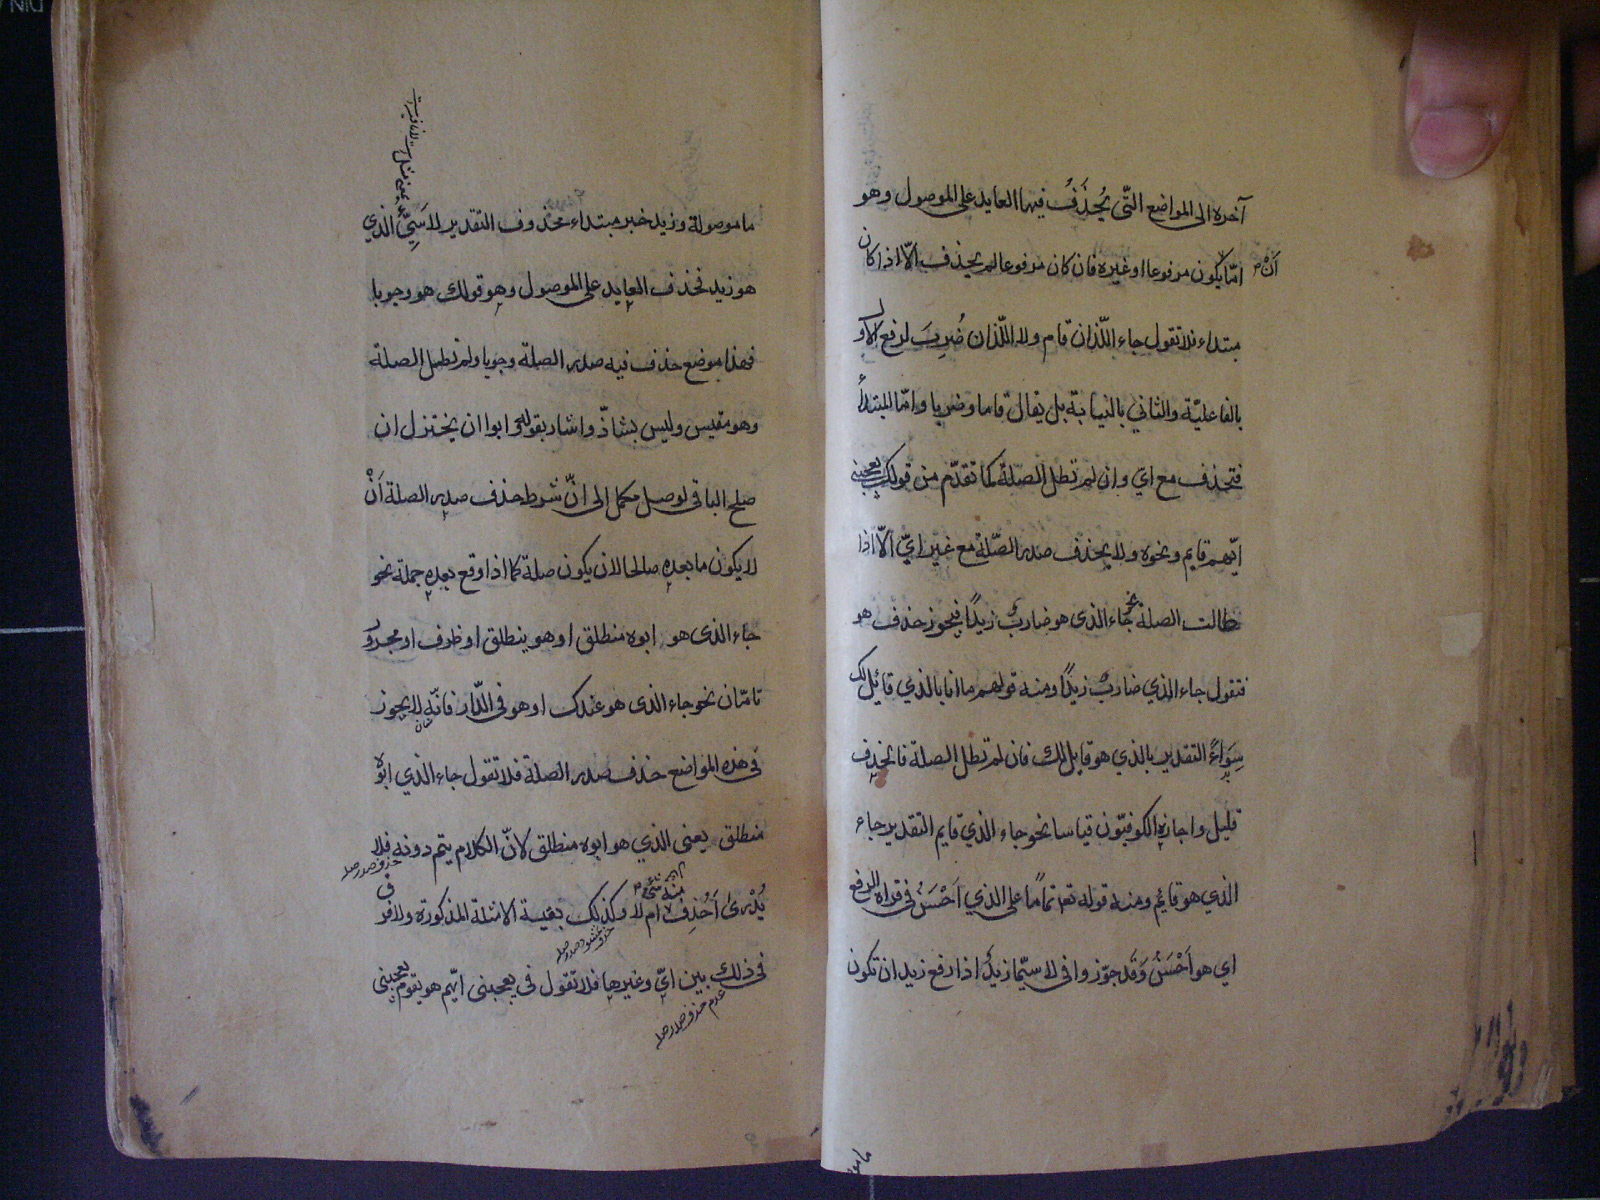 آخره الى المواضع التّى يُحْذَفُ فيها العايد على الموصول وهو
أنْ
امّا يكون مرفوعا او غيره فان كان مرفوعا لم يحذف الّا اذا كان
مبتداء فلا تقول جاء اللّذان قام ولا اللّذان ضُرِبَ لرفع الاول
بالفاعليّة والثاني بالنيابة بل يقال قاما وضربا وامّا المبتدأ
فتحذف مع اي وان لم تطل الصّلة كما تقدّم من قولك يعجبنى
ايّهم قايم ونحوه ولا يحذف صدر الصّلة مع غير ايّ الّا اذا
طالت الصلة نحو جاء الذى هو ضاربٌ زيدًا فيجوز حذف هو
فتقول جاء الذي ضاربٌ زيدًا ومنه قولهم ما انا بالذي قائل لك
سِوَاءً التقدير بالذي هو قايل لك فان لم تطل الصلة فالحذف
قليل واجازه الكوفيّون قياسا نحو جاء الذي قايم التقدير جاء
الذي هو قائم ومنه قوله تعه تمامًا على الذي اَحْسَنُ فى قراة الرفع
اي هو اَحْسَنُ وَقَد جوّزوا فى لا سيّما زيدٌ اذا رفع زيد ان تكون
ما موصولة وزيد خبر مبتداء محذوف التقدير لا سَيِّ الذي
هو زيد فحذف العايد على الموصول وهو قولك هو وجوبا
فهذا موضع حذف فيه صدر الصلة وجوبا ولم تطل الصلة
وهو مقيس وليس بشاذّ واشار بقوله وابوا ان يختزل ان
صلح الباقى لوصل مكمل الى انّ شرط حذف صدر الصلة اَنْ
لا يكون ما بعده صالحا لان يكون صلة كما اذا وقع بعده جملة نحو
جاء الذى هو ابوه منطلق او هو ينطلق او ظرف او مجرور
تامّان نحو جاء الذى هو عندك او هو فى الدّار فانّه لا يجوز
فى هذه المواضع حذف صدر الصلة فلا تقول جاء الذي ابوه
منطلق يعنى الذي هو ابوه منطلق لانّ الكلام يتم دونه فلا
حذف صدر صله
منه شئ
يُدْرى اَحُذِفَ ام لا وكذلك بقية الامثلة المذكورة ولا فرق
فى ذلك بين ايّ وغيرها فلا تقول فى يعجبنى ايّهم هو يقوم يعجبنى
عدم حذف صدر صله